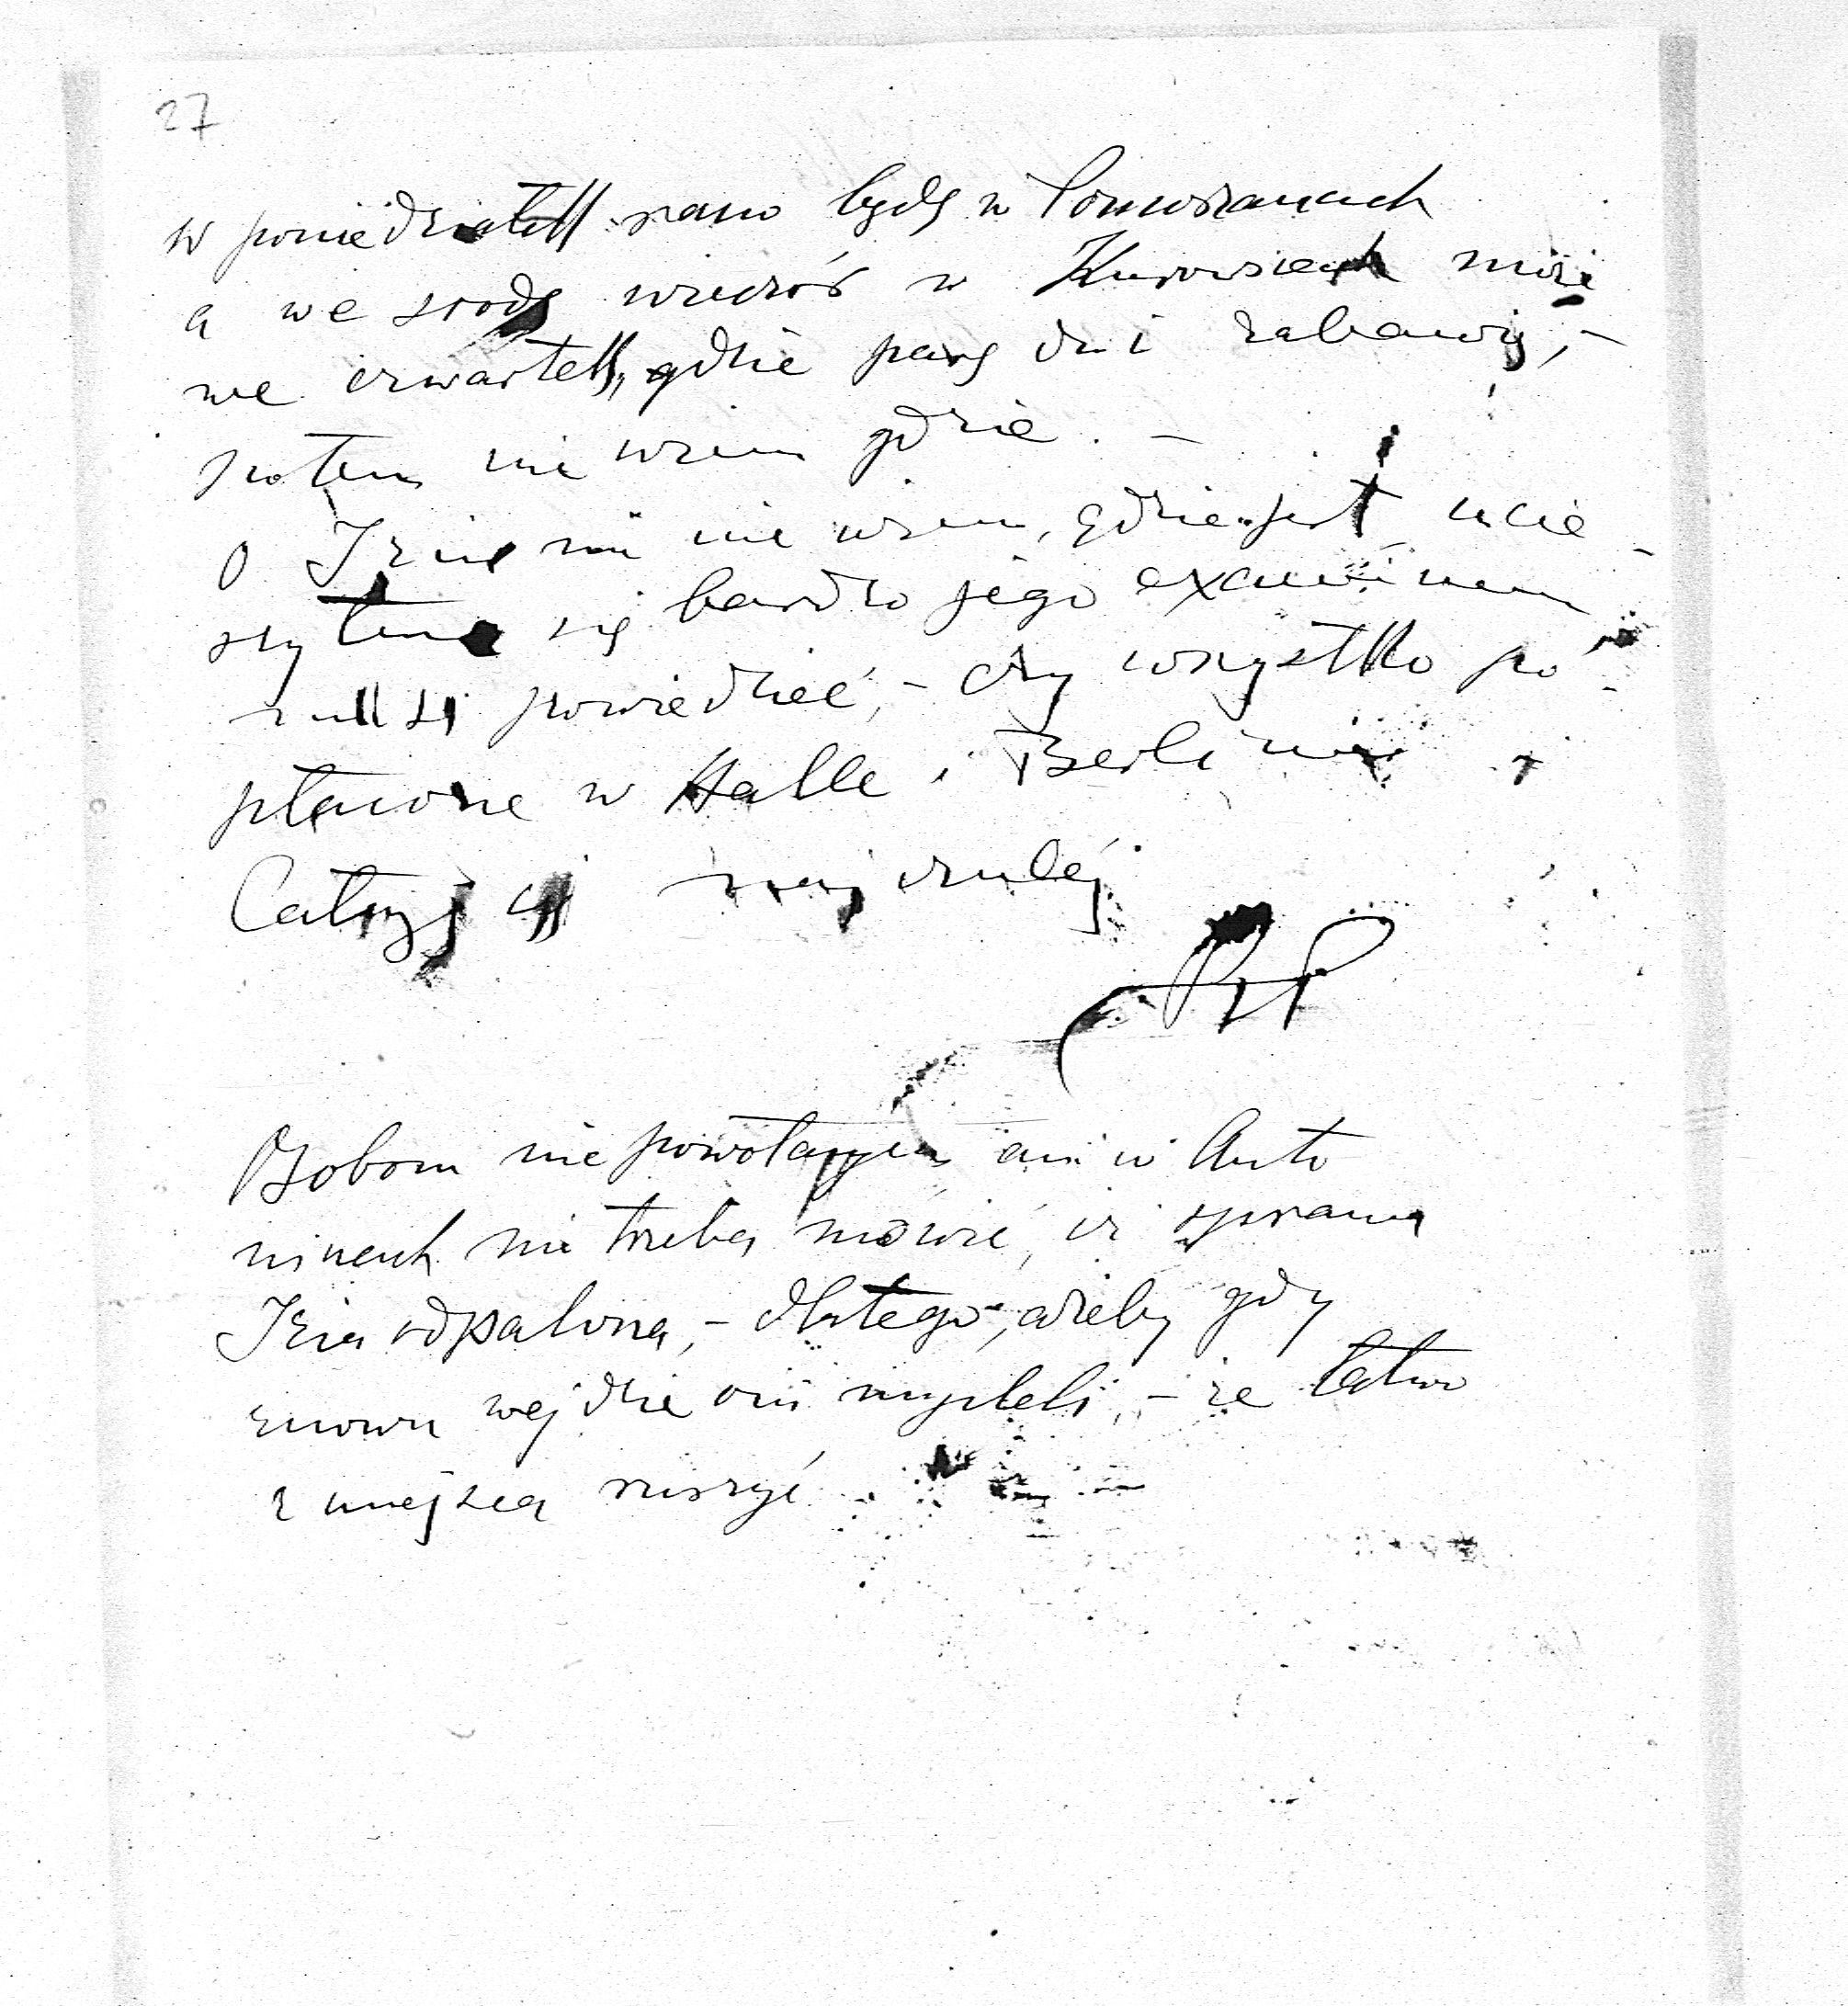 27
w poniedziałek rano będę w Pomorzanach
a we srodę wieczór w Kurowicach może
we czwartek, gdzie parę dni zabawię, –
potem nie wiem gdzie. –
O Iziu nic nie wiem, gdzie jest, ucie
szyłem się bardzo jego examinem
powiedzieć, – czy wszystko po
płacone w Halle i Berlinie
Całuję cię najczulej
RP
Osobom nie powołanym ani w Anto
ninach nie trzeba mówić, iż sprawa
Izia odpalona, – dlatego, ażeby gdy
znowu wejdzie oni myśleli, – że łatwo
z miejsca ruszyć